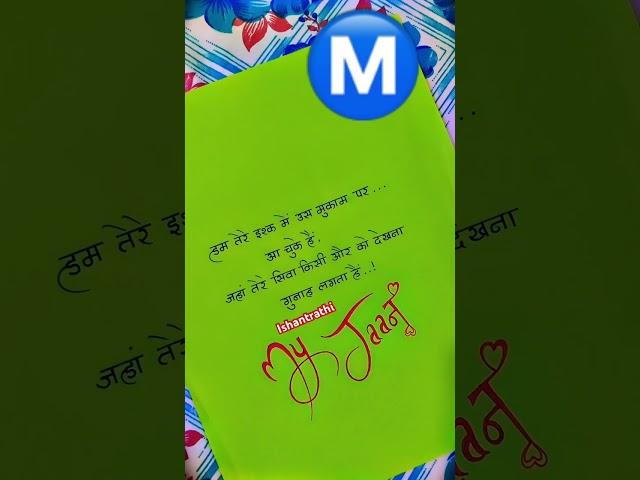 M
हम तेरे इश्क में उस मुकाम पर...
आ चुके हैं.
जहां तेरे सिवा किसी और को देखना
गुनाह लगता हैं..!
Ishantrathi
My Jaan